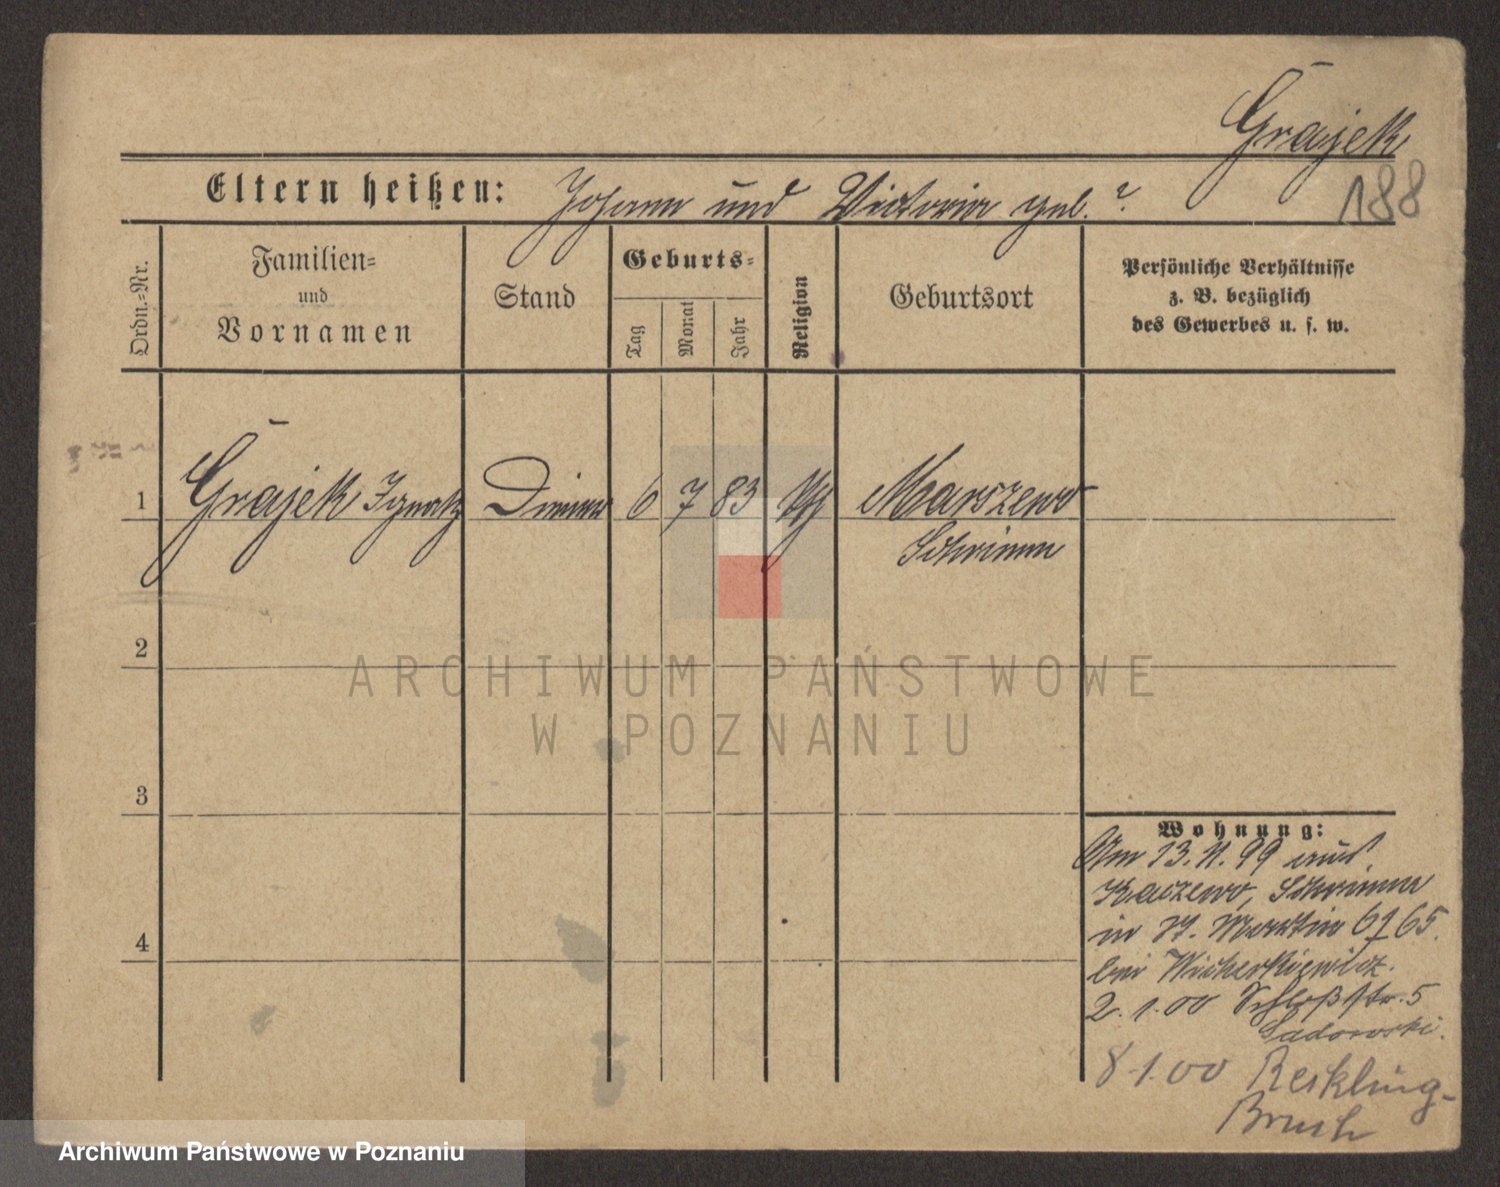 Grajek
188
Eltern heißen: Johann und Victoria geb. ?
Ordn.-Nr.
Familien-
und
Vornamen
Stand
Geburts-
Tag
Monat
Jahr
Religion
Geburtsort
Persönliche Verhältnisse
z. B. bezüglich
des Gewerbes u. s. w.
1 Grajek Ignatz Diener 6 7 83 Marszewo
Schrimm
2
ARCHIWUM PAŃSTWOWE
W POZNANIU
3
Wohnung:
Am 13. 11. 99 aus
Kaczewo, Schrimm
in St. Martin 65
bei Wicherkiewicz.
2. 1. 00 Schloßstr. 5
Sadowski.
4
8-1.00 Reckling-
Bruch
Archiwum Państwowe w Poznaniu